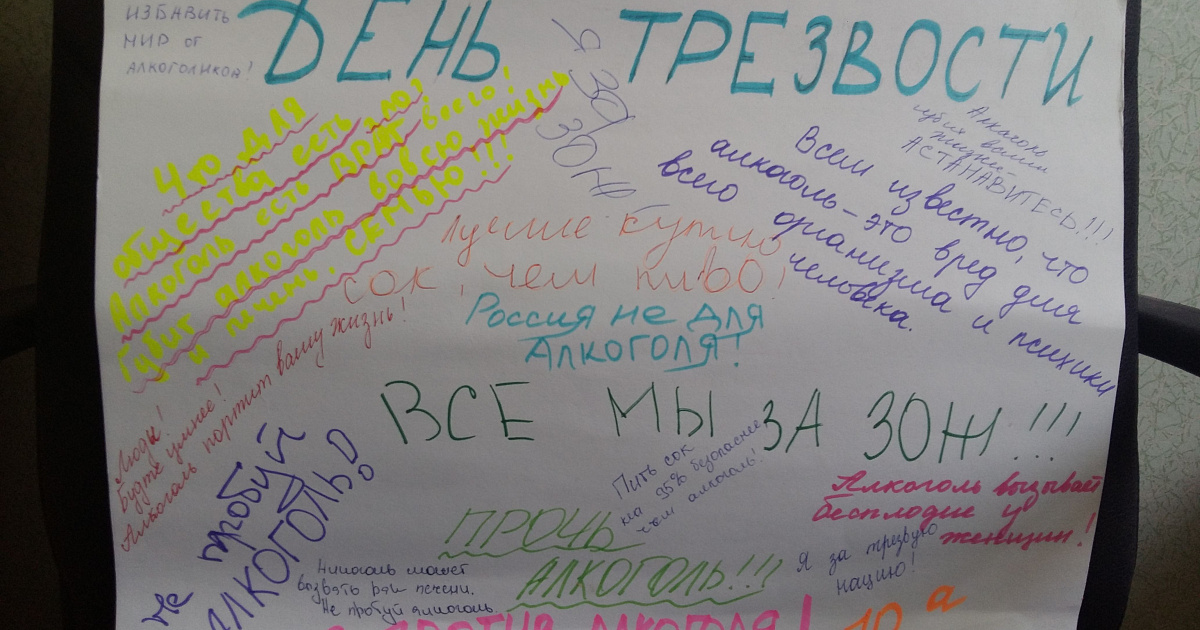 ИЗБАВИТЬ
МИР ОТ
АЛКОГОЛИКОВ!
ДЕНЬ ТРЕЗВОСТИ
Я ЗА
ЗОЖ
Что для
общества есть зло?
Алкоголь есть ВРАГ всего!
Губит алкоголь во всю жизнь
и печень, СЕМЬЮ!!!
Алкоголь
губит ваши
жизни
АСТАНАВИТЕСЬ!!!
Всем известно, что
алкоголь - это вред для
всего организма и психики
человека.
лучше купи
сок, чем пиво!
Россия не для
Алкоголя!
Люды!
Будте умнее!
Алкоголь портит вашу жизнь!
ВСЕ МЫ ЗА ЗОЖ!!!
Не пробуй
АЛКОГОЛЬ!
Пить сок
на 95% безопаснее
чем алкоголь!
Алкоголь вызывает
бесплодие у
женщин!
ПРОЧЬ
АЛКОГОЛЬ!!!
Я за трезвую
нацию!
может
вызвать рак печени.
Не пробуй алкоголь.
ПРОТИВ АЛКОГОЛЯ!
10 а